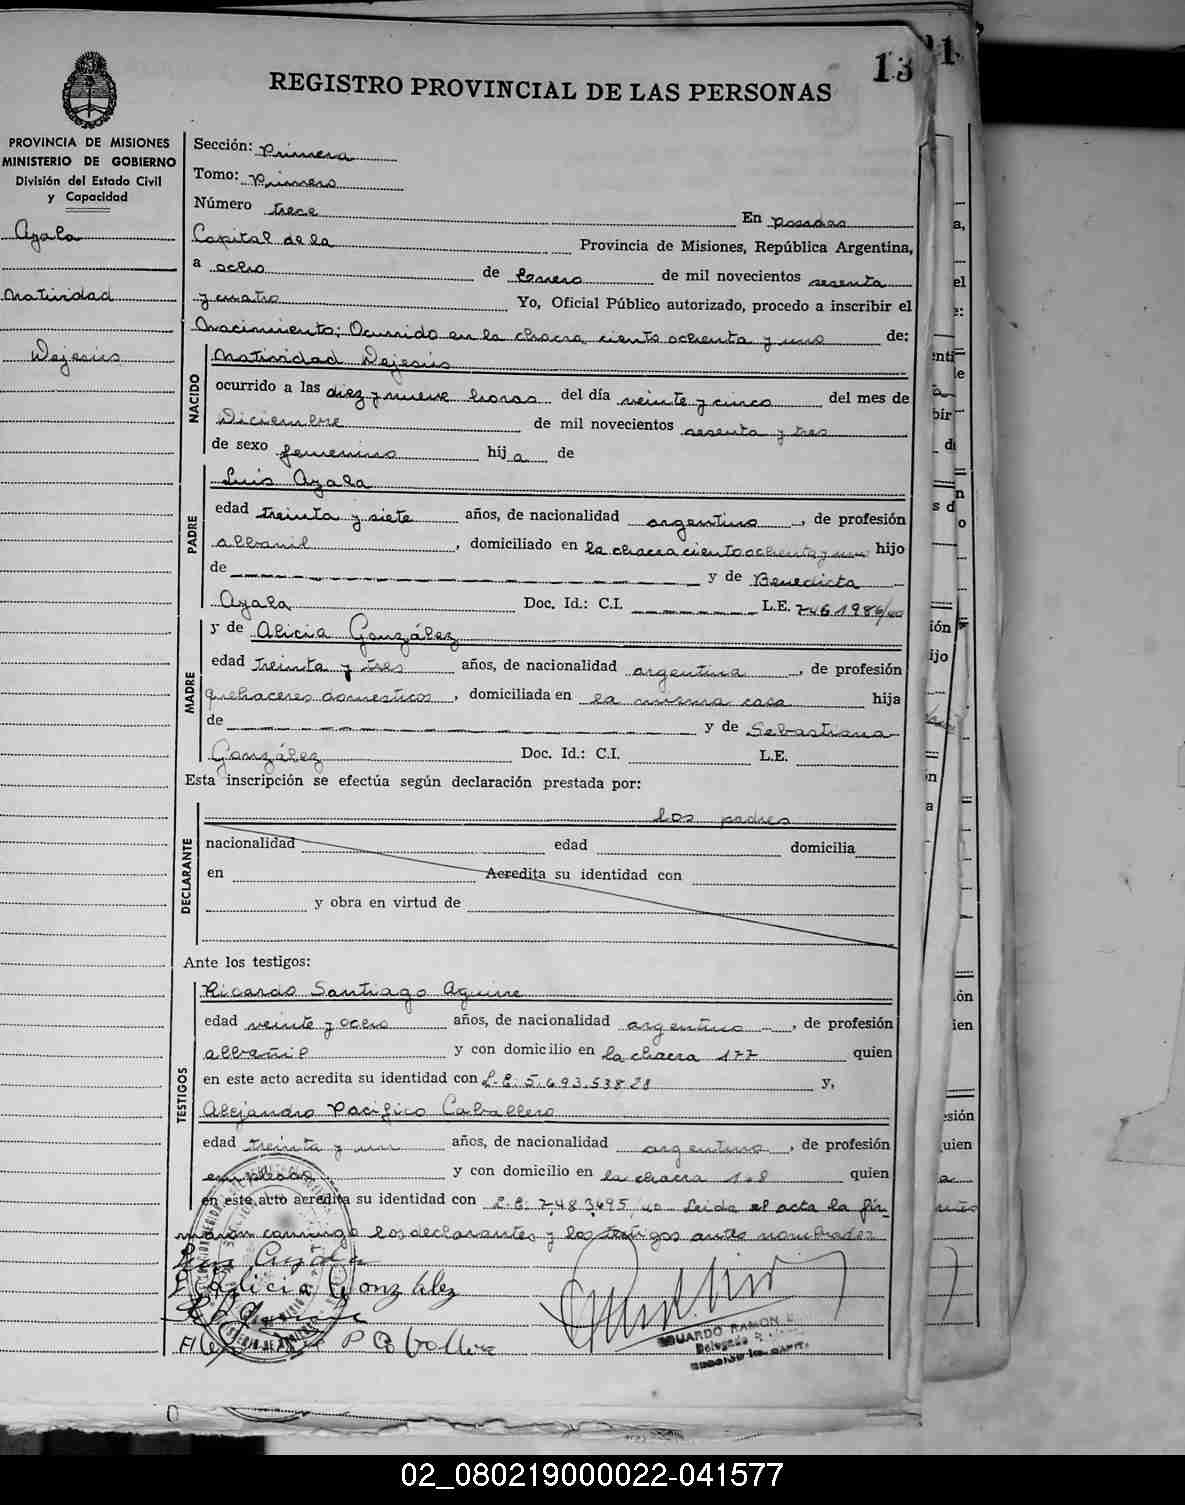 13
1
REGISTRO PROVINCIAL DE LAS PERSONAS
PROVINCIA DE MISIONES
MINISTERIO DE GOBIERNO
División del Estado Civil
y Capacidad
Ayala
Natividad
Dejesús
Sección: Primera
Tomo: Primero
Número trece En Posadas
Capital de la Provincia de Misiones, República Argentina,
a ocho de Enero de mil novecientos sesenta
y cuatro Yo, Oficial Público autorizado, procedo a inscribir el
Nacimiento; Ocurrido en la chacra ciento ochenta y uno de:
NACIDO
Natividad Dejesús
ocurrido a las diez y nueve horas del día veinte y cinco del mes de
Diciembre de mil novecientos sesenta y tres
de sexo femenino hija de
PADRE
Luis Ayala
edad treinta y siete años, de nacionalidad argentino, de profesión
albanil, domiciliado en la chacra ciento ochenta y uno hijo
de y de Benedicta
Ayala Doc. Id.: C.I. L.E.
MADRE
y de Alicia González
edad treinta y tres años, de nacionalidad argentina, de profesión
quehaceres domesticos, domiciliada en la misma casa hija
de y de Sebastiana
González Doc. Id.: C.I. L.E.
Esta inscripción se efectúa según declaración prestada por:
DECLARANTE
los padres
nacionalidad edad domicilia
en Acredita su identidad con
y obra en virtud de
Ante los testigos:
TESTIGOS
Ricardo Santiago Aguirre
edad veinte y ocho años, de nacionalidad argentino, de profesión
albañil y con domicilio en la chacra 177 quien
en este acto acredita su identidad con L.E. 5.693.538 y,
Alejandro Pacífico Caballero
edad treinta y un años, de nacionalidad argentino, de profesión
empleado y con domicilio en la chacra quien
en este acto acredita su identidad con L.E. 7.483.695 Leida el acta la fir-
man conmigo los declarantes y los testigos antes nombrados
Luis Ayala
Alicia González
P Caballero
EDUARDO RAMON
Delegado
02_080219000022-041577